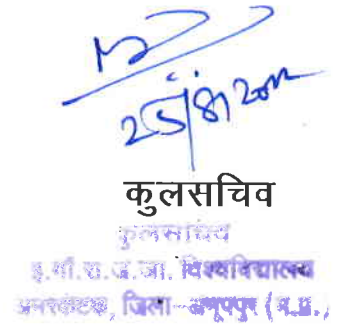 कुलसचिव
कुलसचिव
इ.गाँ.रा.ज.जा. विश्वविद्यालय
अमरकंटक, जिला-अनूपपुर (म.प्र.)